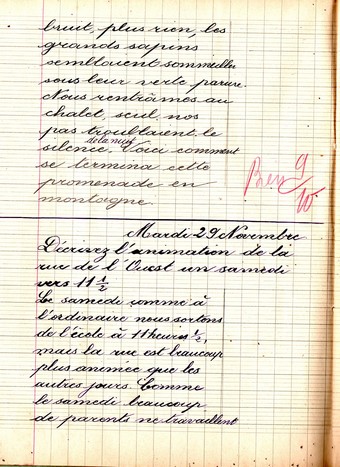 bruit, plus rien, les
grands sapins
semblaient sommeiller
sous leur verte parure.
Nous rentrâmes au
chalet, seul, nos
pas troublaient le
de la nuit
silence. Voici comment
se termina cette
promenade en
montagne
Bien 9/10
Mardi 29 Novembre
Décrivez l'animation de la
rue de l'Ouest un samedi
vers 11 1/2
Le samedi comme à
l'ordinaire nous sortons
de l'école à 11 heures 1/2,
mais la rue est beaucoup
plus animée que les
autres jours. Comme
le samedi beaucoup
de parents ne travaillent